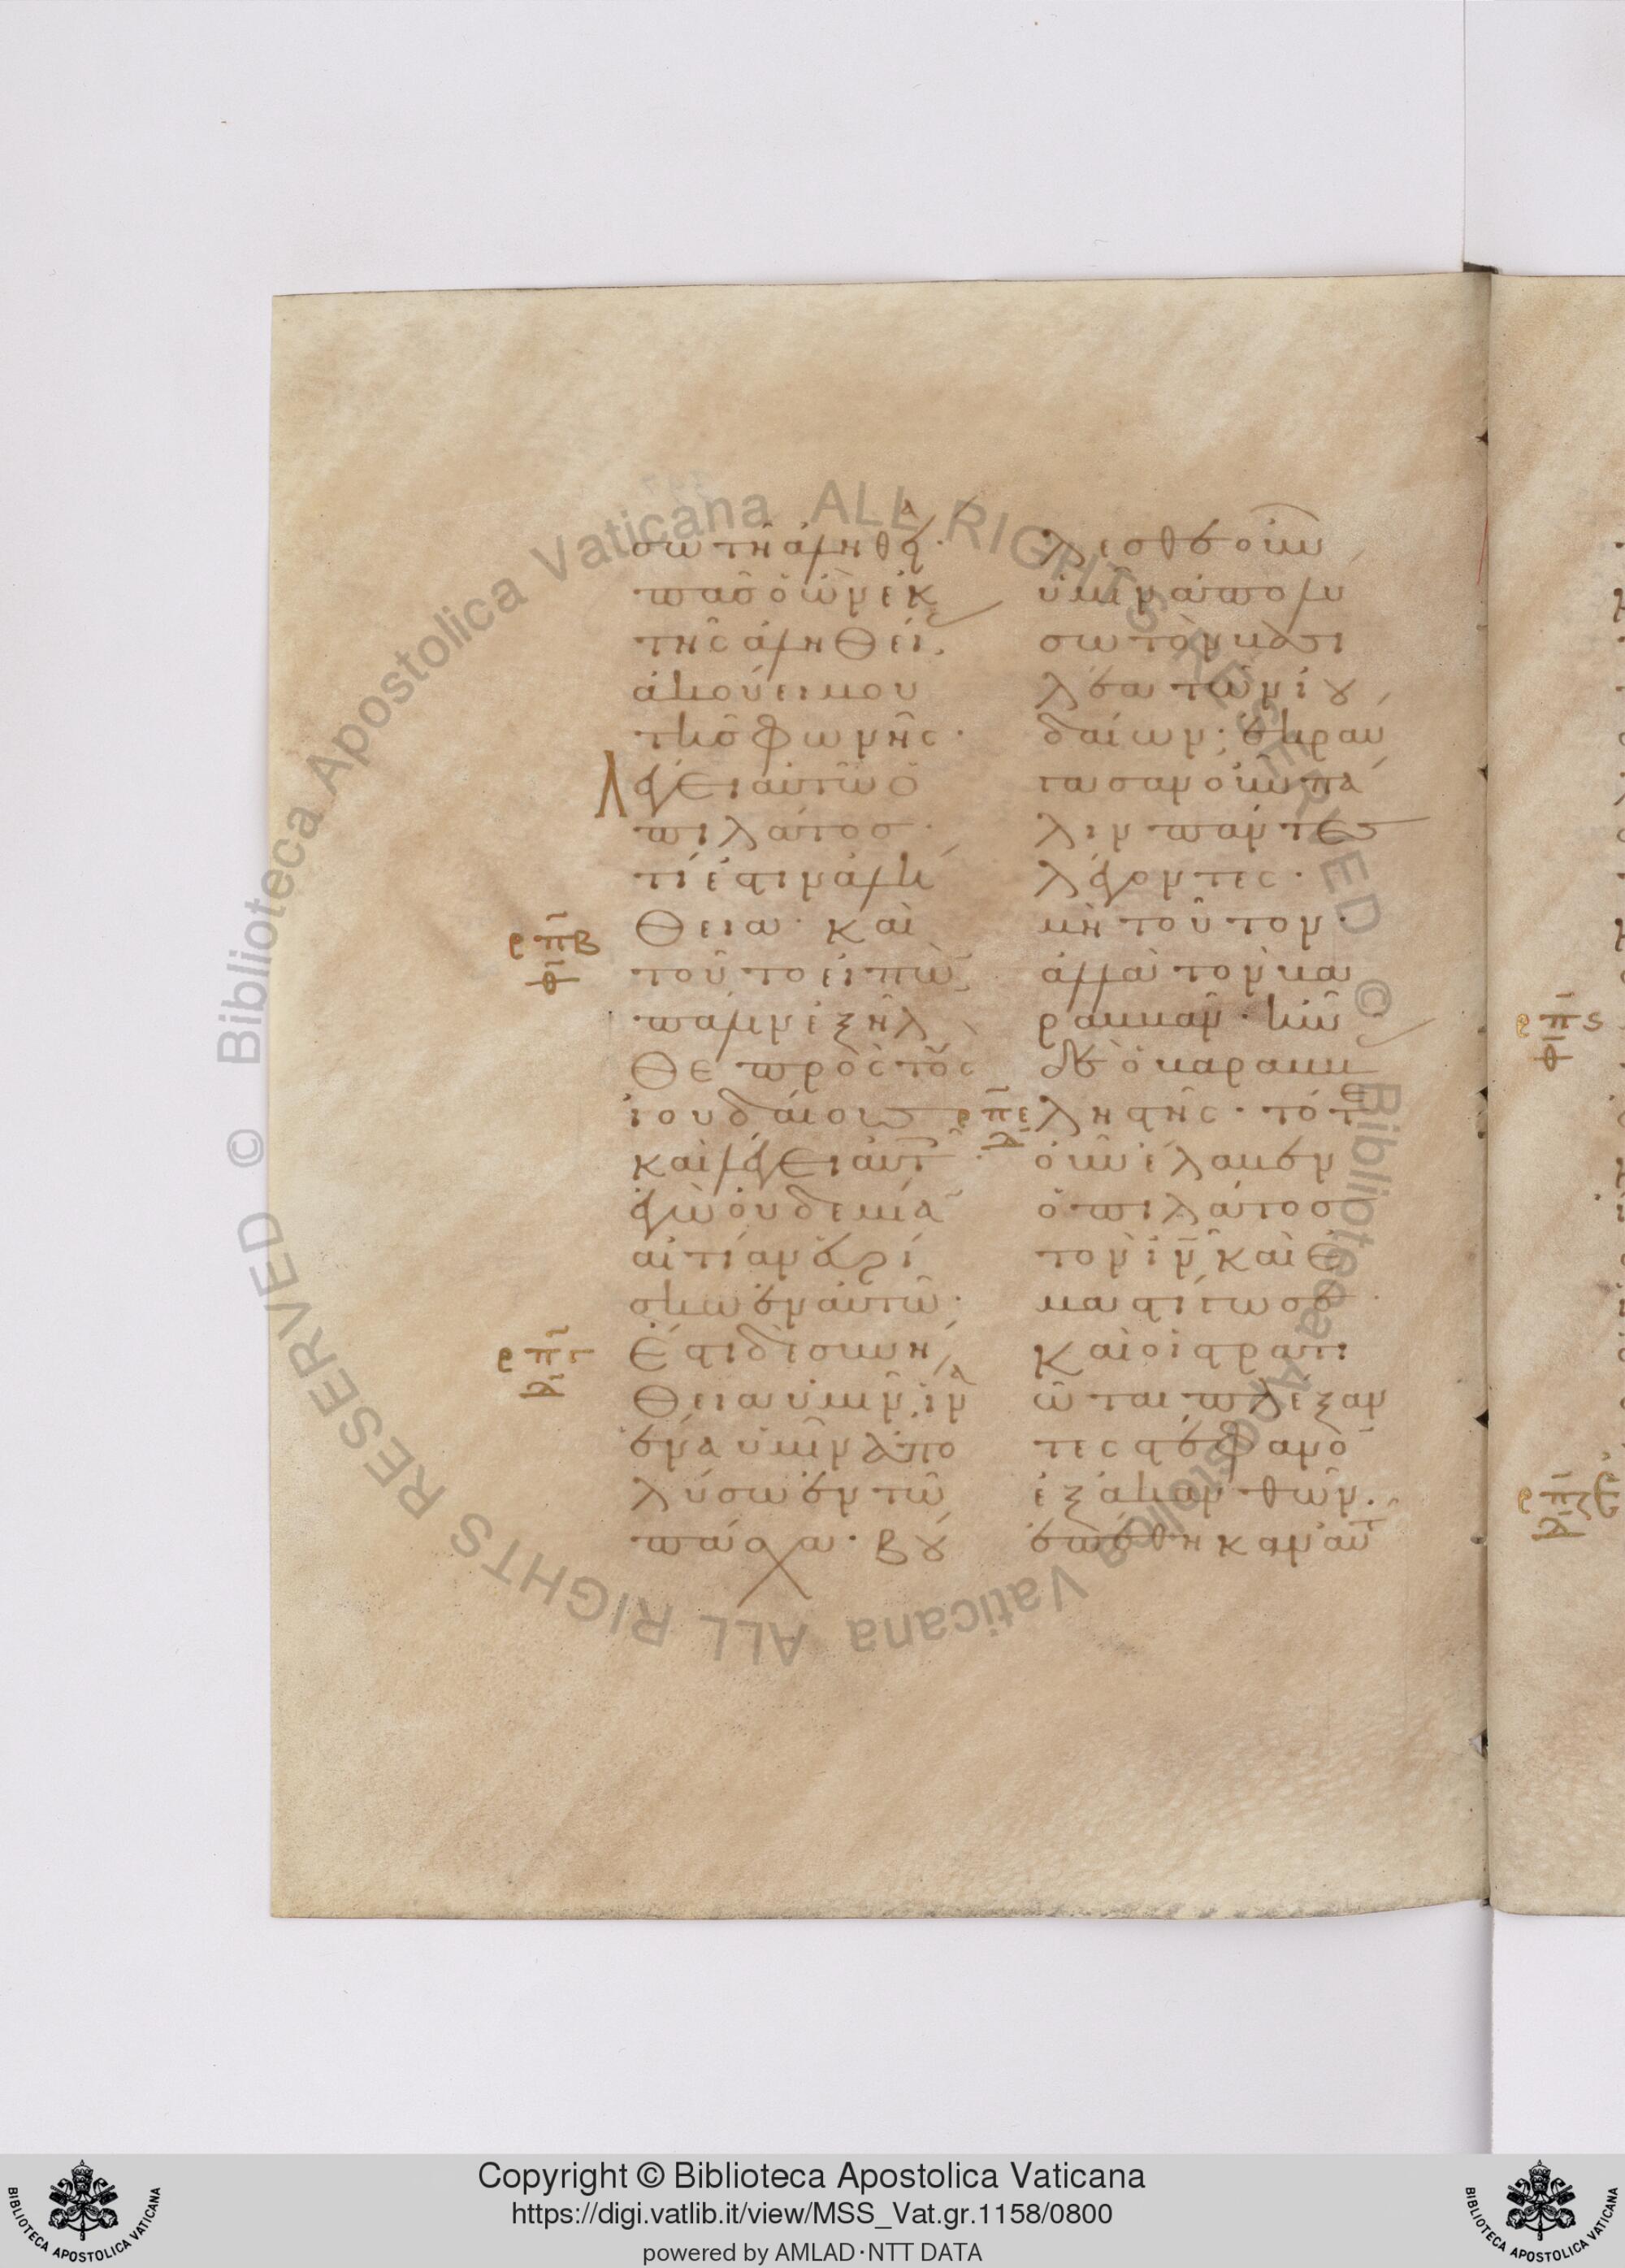 σω τῆ ἀληθεία·
πᾶς ὁ ὢν ἐκ
τῆς ἀληθεί
ας ἀκούει μου
τῆς φωνῆς·
Λέγει αὐτῶ ὁ
πιλάτος·
τί ἐστιν ἀλή
θεια· καὶ
τοῦτο εἰπὼν
πάλιν ἐξῆλ
θε πρὸς τοὺς
ἰουδαίους
καὶ λέγει αὐτοῖς·
ἐγὼ οὐδεμίαν
αἰτίαν εὑρί
σκω ἐν αὐτῶ·
ἔστι δὲ συνή
θεια ὑμῖν ἵνα
ἕνα ὑμῖν ἀπο
λύσω ἐν τῶ
πάσχα· βού
λεσθε οὖν
ὑμῖν ἀπολύ
σω τὸν βασι
λέα τῶν ἰου
δαίων· ἐκραύ
γασαν οὖν πά
λιν πάντες
λέγοντες·
μὴ τοῦτον·
ἀλλὰ τὸν βα
ραββᾶν· ἦν
δὲ ὁ βαραββᾶς
ληστής· τότε
οὖν ἔλαβεν
ὁ πιλάτος
τὸν ἰν καὶ ἐ
μαστίγωσε·
καὶ οἱ στρατι
ῶται πλέξαν
τες στέφανον
ἐξ ἀκανθῶν·
ἐπέθηκαν αὐτοῦ
ρπβ
ρπγ
ρπε
ρπς
Copyright © Biblioteca Apostolica Vaticana
https://digi.vatlib.it/view/MSS_Vat.gr.1158/0800
powered by AMLAD·NTT DATA
BIBLIOTECA APOSTOLICA VATICANA
BIBLIOTECA APOSTOLICA VATICANA
© Biblioteca Apostolica Vaticana ALL RIGHTS RESERVED
© Biblioteca Apostolica Vaticana ALL RIGHTS RESERVED